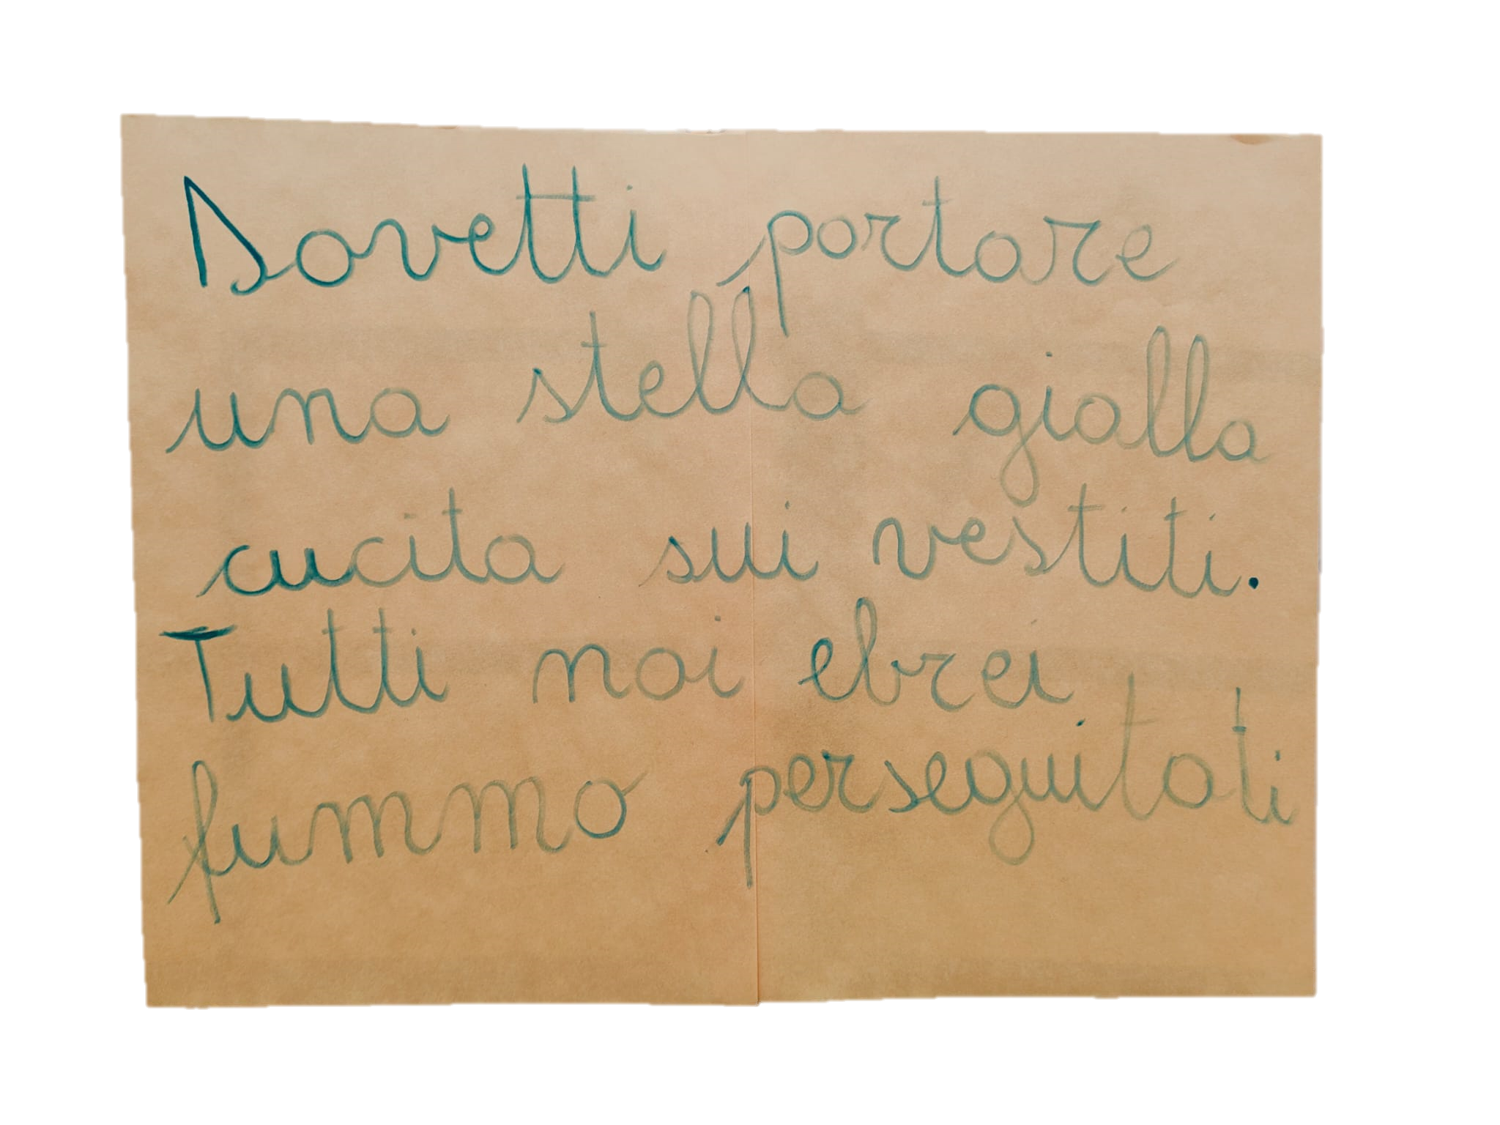 Dovetti portare
una stella gialla
cucita sui vestiti.
Tutti noi ebrei
fummo perseguitati